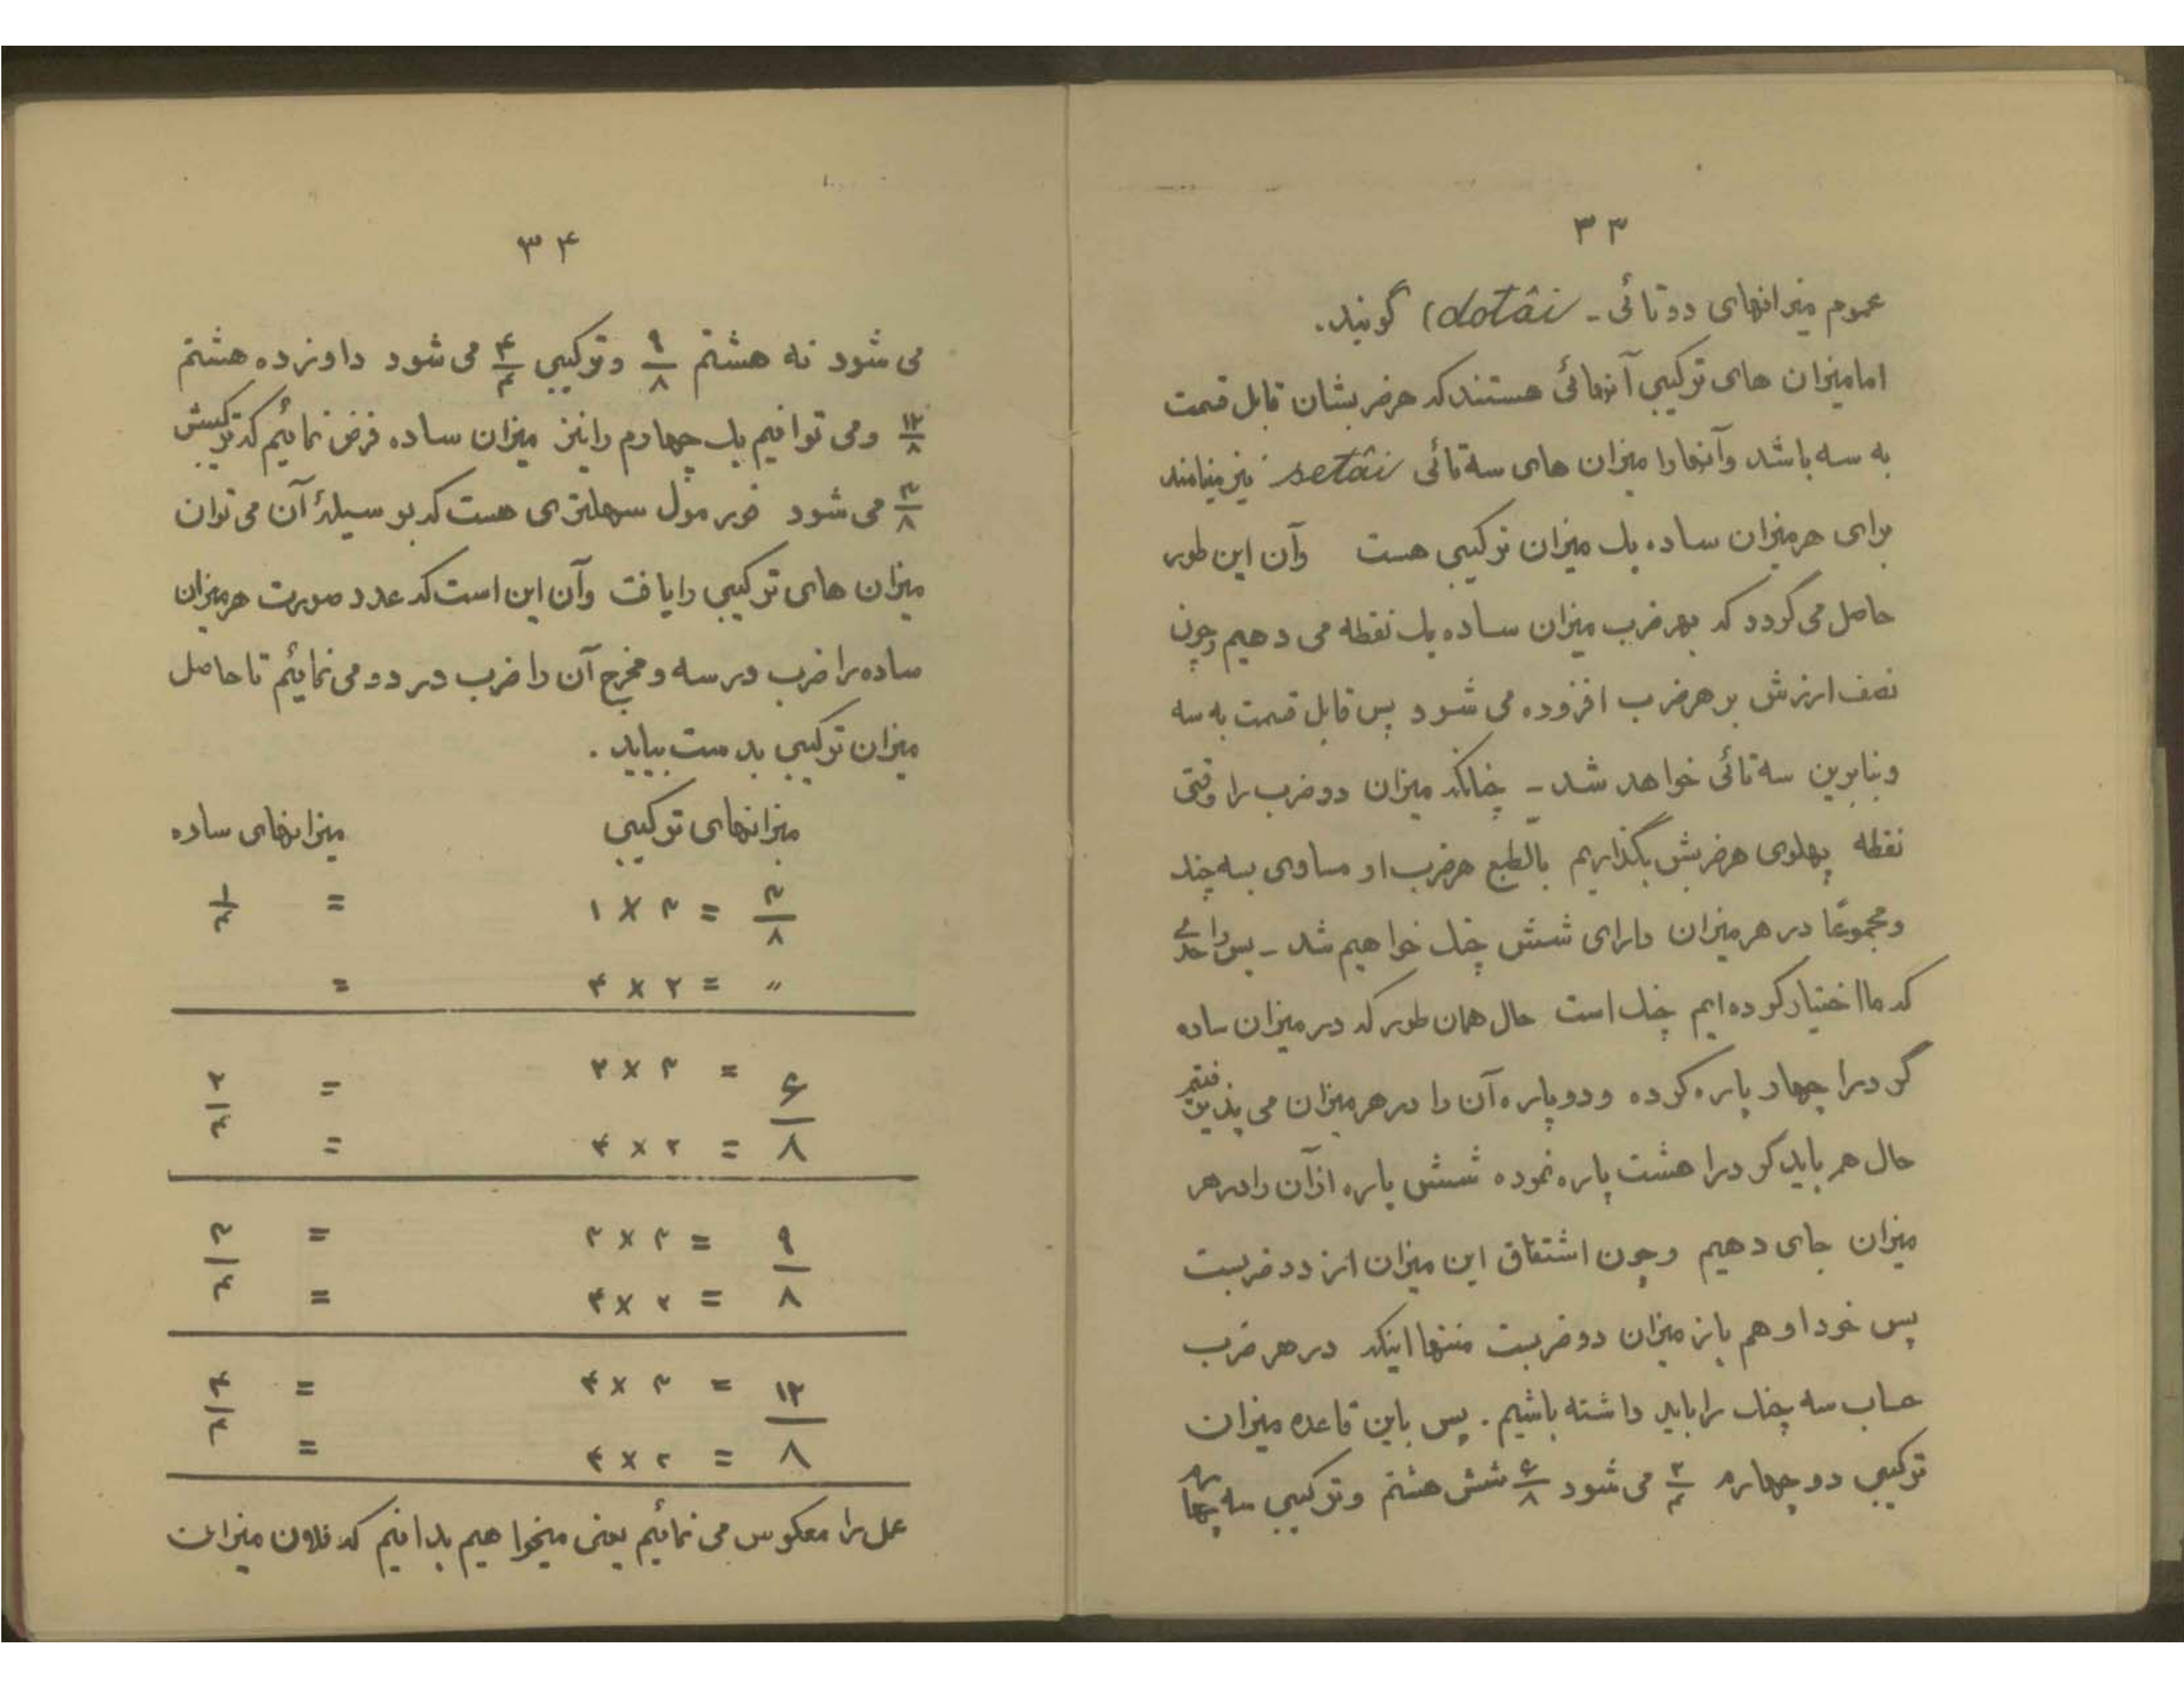 ۳۳
عموم میزانهای دوتائی - dotâi) گویند.
اما میزان های ترکیبی آنهائی هستند که هر ضربشان قابل قسمت
به سه باشد وآنها را میزان های سه تائی setâi نیز مینامند
برای هر میزان ساده یک میزان ترکیبی هست وآن این طور
حاصل می گردد که بهر ضرب میزان ساده یک نقطه می دهیم وچون
نصف ارزش بر هر ضرب افزوده می شود پس قابل قسمت به سه
وبنابرین سه تائی خواهد شد - چنانکه میزان دو ضرب را وقتی
نقطه پهلوی هر ضربش بگذاریم بالطبع هر ضرب او مساوی بسه چنگ
ومجموعًا در هر میزان دارای شش چنگ خواهیم شد - پس واحدی
که ما اختیار کرده ایم چنگ است حال همان طور که در میزان ساده
گرد را چهار پاره کرده ودو پاره آن را در هر میزان می پذیرفتیم
حال هم باید گرد را هشت پاره نموده شش پاره ازآن را در هر
میزان جای دهیم وچون اشتقاق این میزان از دو ضربست
پس خود او هم باز میزان دو ضربست منتها اینکه در هر ضرب
حساب سه چنگ را باید داشته باشیم. پس باین قاعده میزان
ترکیبی دو چهارم ۲/۴ می شود ۶/۸ شش هشتم وترکیبی سه چهار
۳۴
می شود نه هشتم ۹/۸ وترکیبی ۴/۴ می شود داوزده هشتم
۱۲/۸ ومی توانیم یک چهارم را نیز میزان ساده فرض نمائیم که ترکیبش
۳/۸ می شود فورمول سهلتری هست که بوسیلهٔ آن می توان
میزان های ترکیبی را یافت وآن این است که عدد صورت هر میزان
ساده را ضرب در سه ومخرج آن را ضرب در دو می نمائیم تا حاصل
میزان ترکیبی بدست بیاید .
میزانهای ترکیبی میزانهای ساده
۳/۸ = ۳ × ۱ = ۱/۴
〃 = ۲ × ۴ =
۶/۸ = ۳ × ۲ = ۲/۴
= ۲ × ۴ =
۹/۸ = ۳ × ۳ = ۳/۴
= ۲ × ۴ =
۱۲/۸ = ۳ × ۴ = ۴/۴
= ۲ × ۴ =
عمل را معکوس می نمائیم یعنی میخواهیم بدانیم که فلان میزان